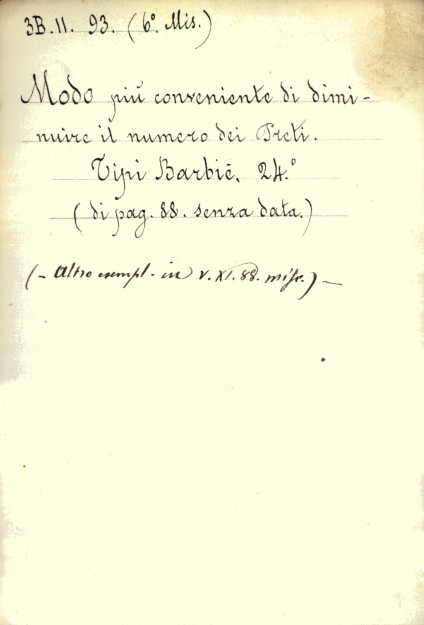 3B.11. 93. (6º Mis.)
Modo più conveniente di dimi-
nuire il numero dei Preti.
Tipi Barbiè. 24.º
(di pag. 88. senza data.)
(- Altro exempl. in V. XI. 88. misc.) -